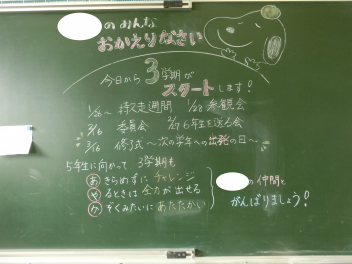 のみんな
おかえりなさい
今日から3学期が
スタートします!
1/26~ 持久走週間 1/28 参観会
2/16 委員会 2/27 6年生を送る会
3/16 修了式 ~次の学年への出発の日~
5年生に向かって 3学期も
あきらめずに チャレンジ
やるときは 全力が出せる
かぞくみたいに あたたかい
の仲間と
がんばりましょう!